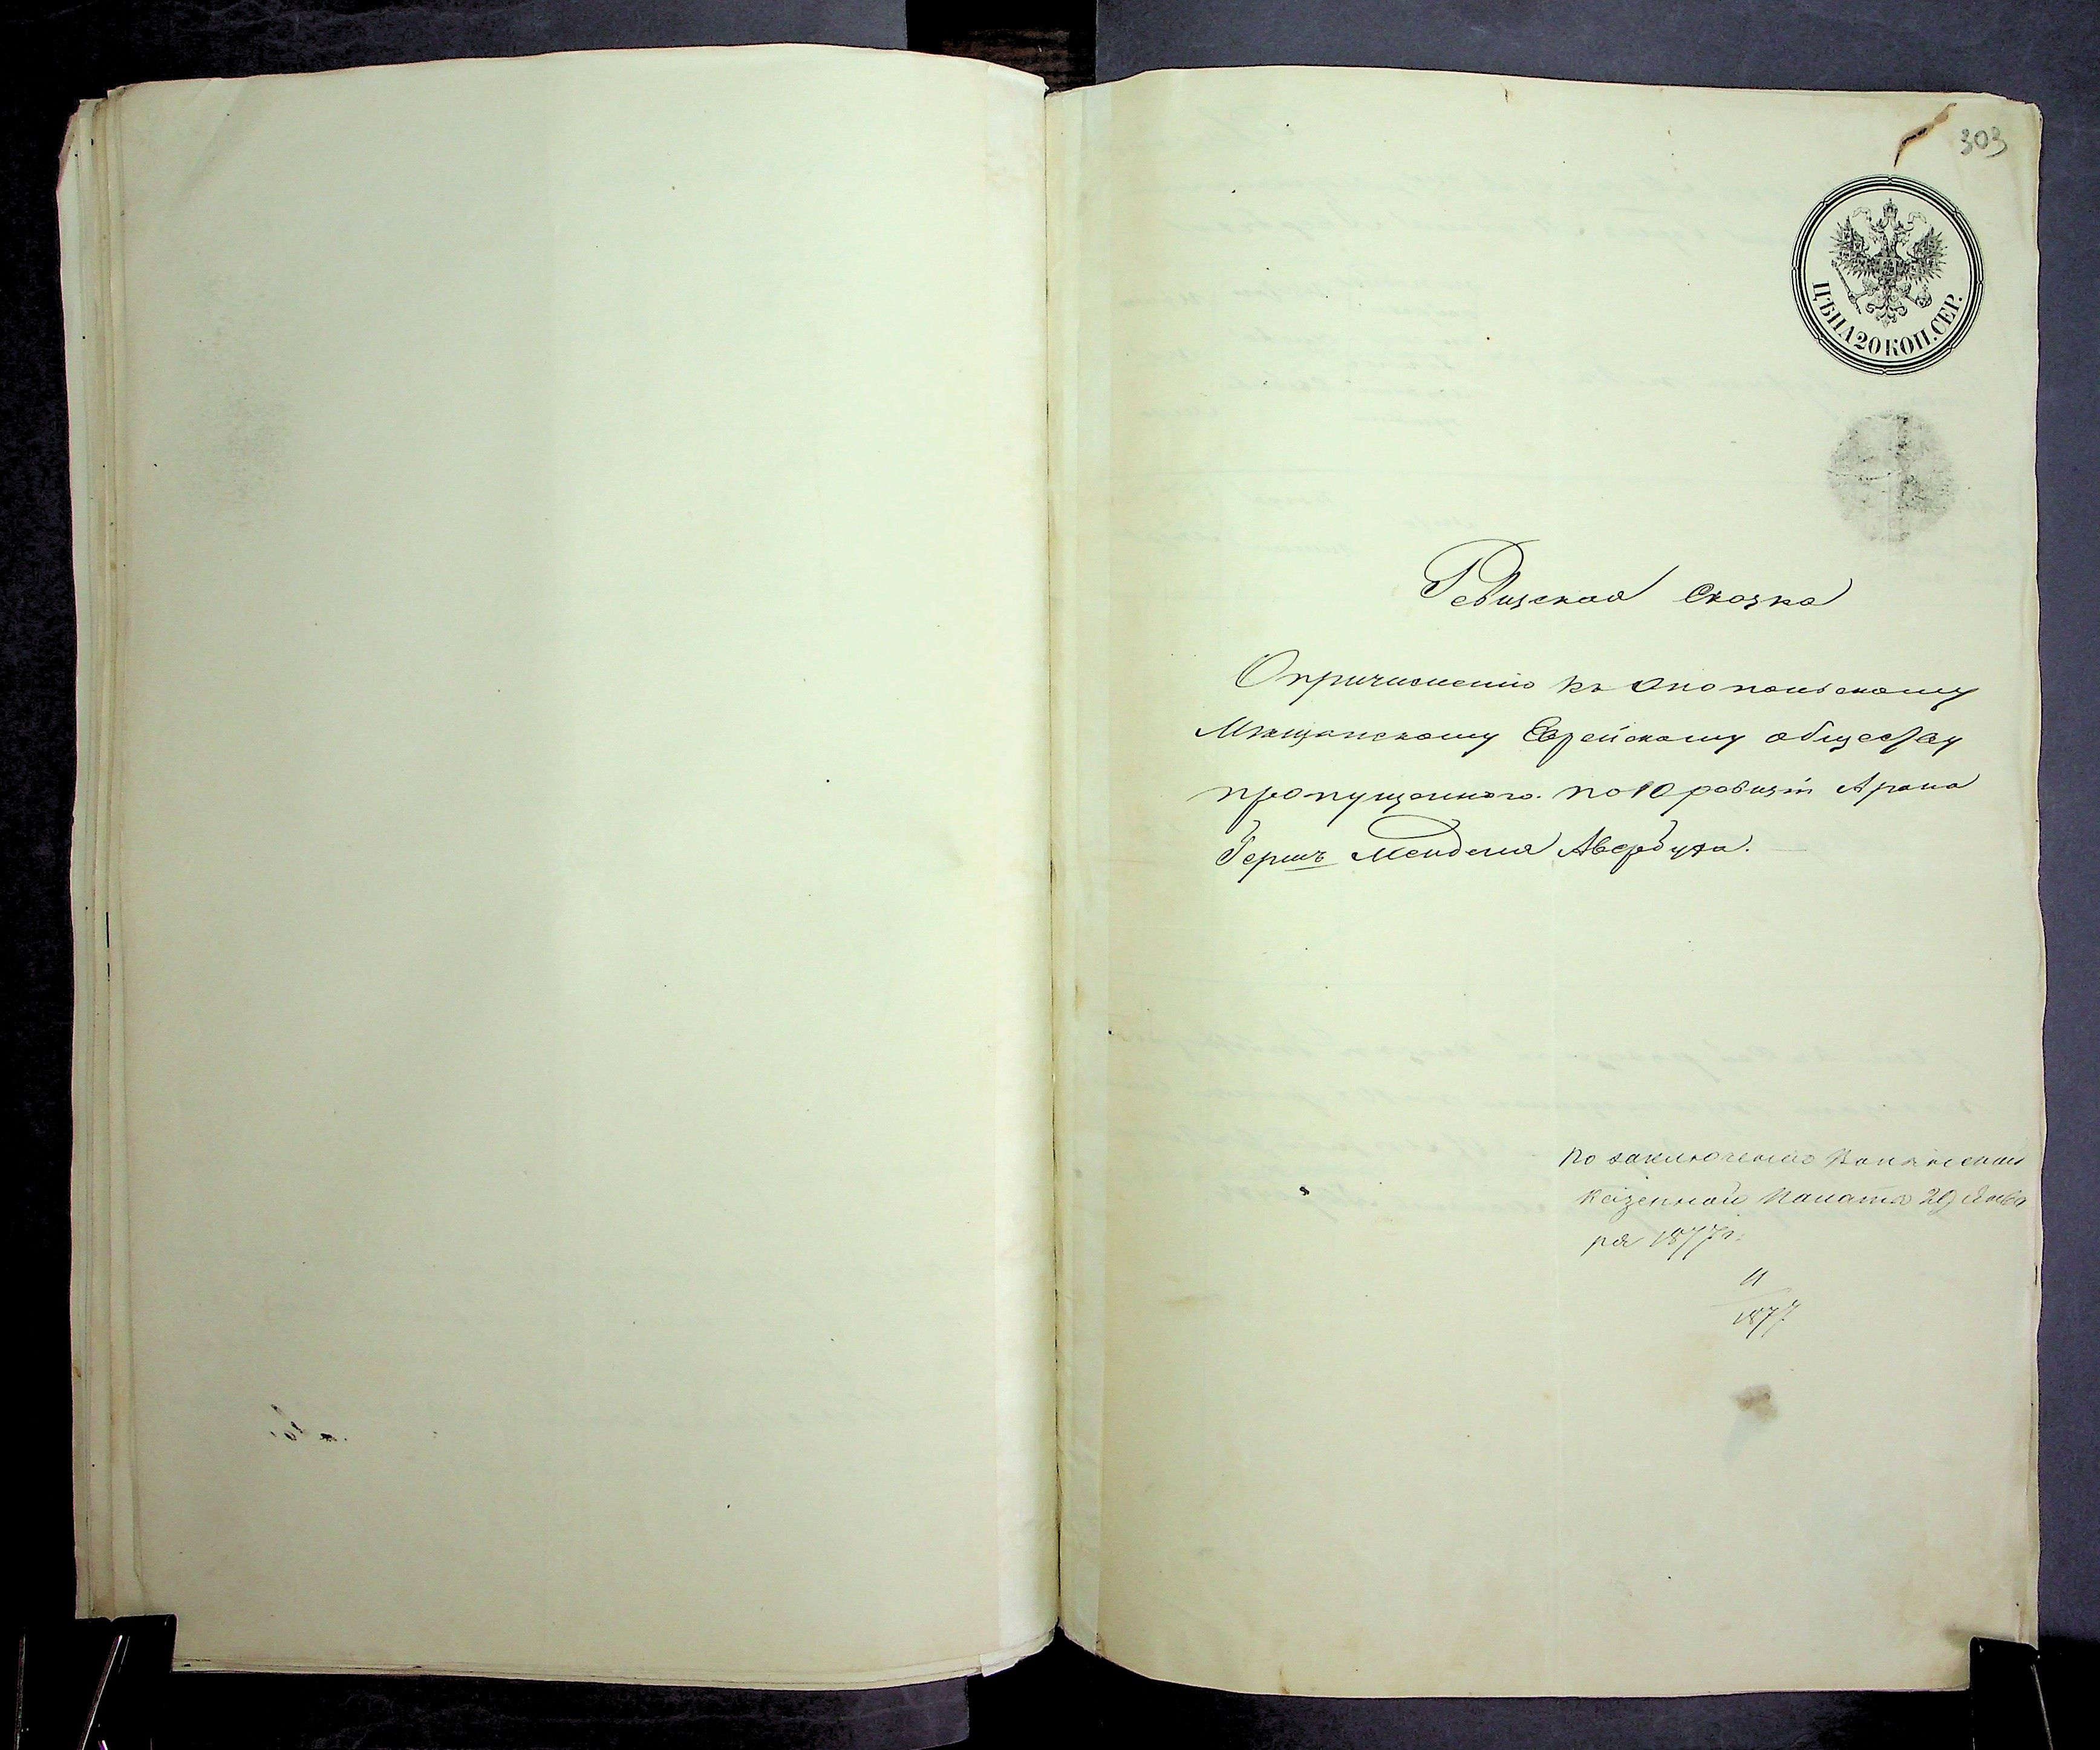 303
ЦѢНА 20 КОП. СЕР.
Ревизская Сказка
О причисленію къ Анопольскому
Мѣщанскому Еврейскому обществу
пропущеннаго по 10 ревизіи Арона
Гершъ Менделя Авербуха.
по заключенію Волынской
Казенной Палаты 29 Янва
ря 1877 г.
11
1877